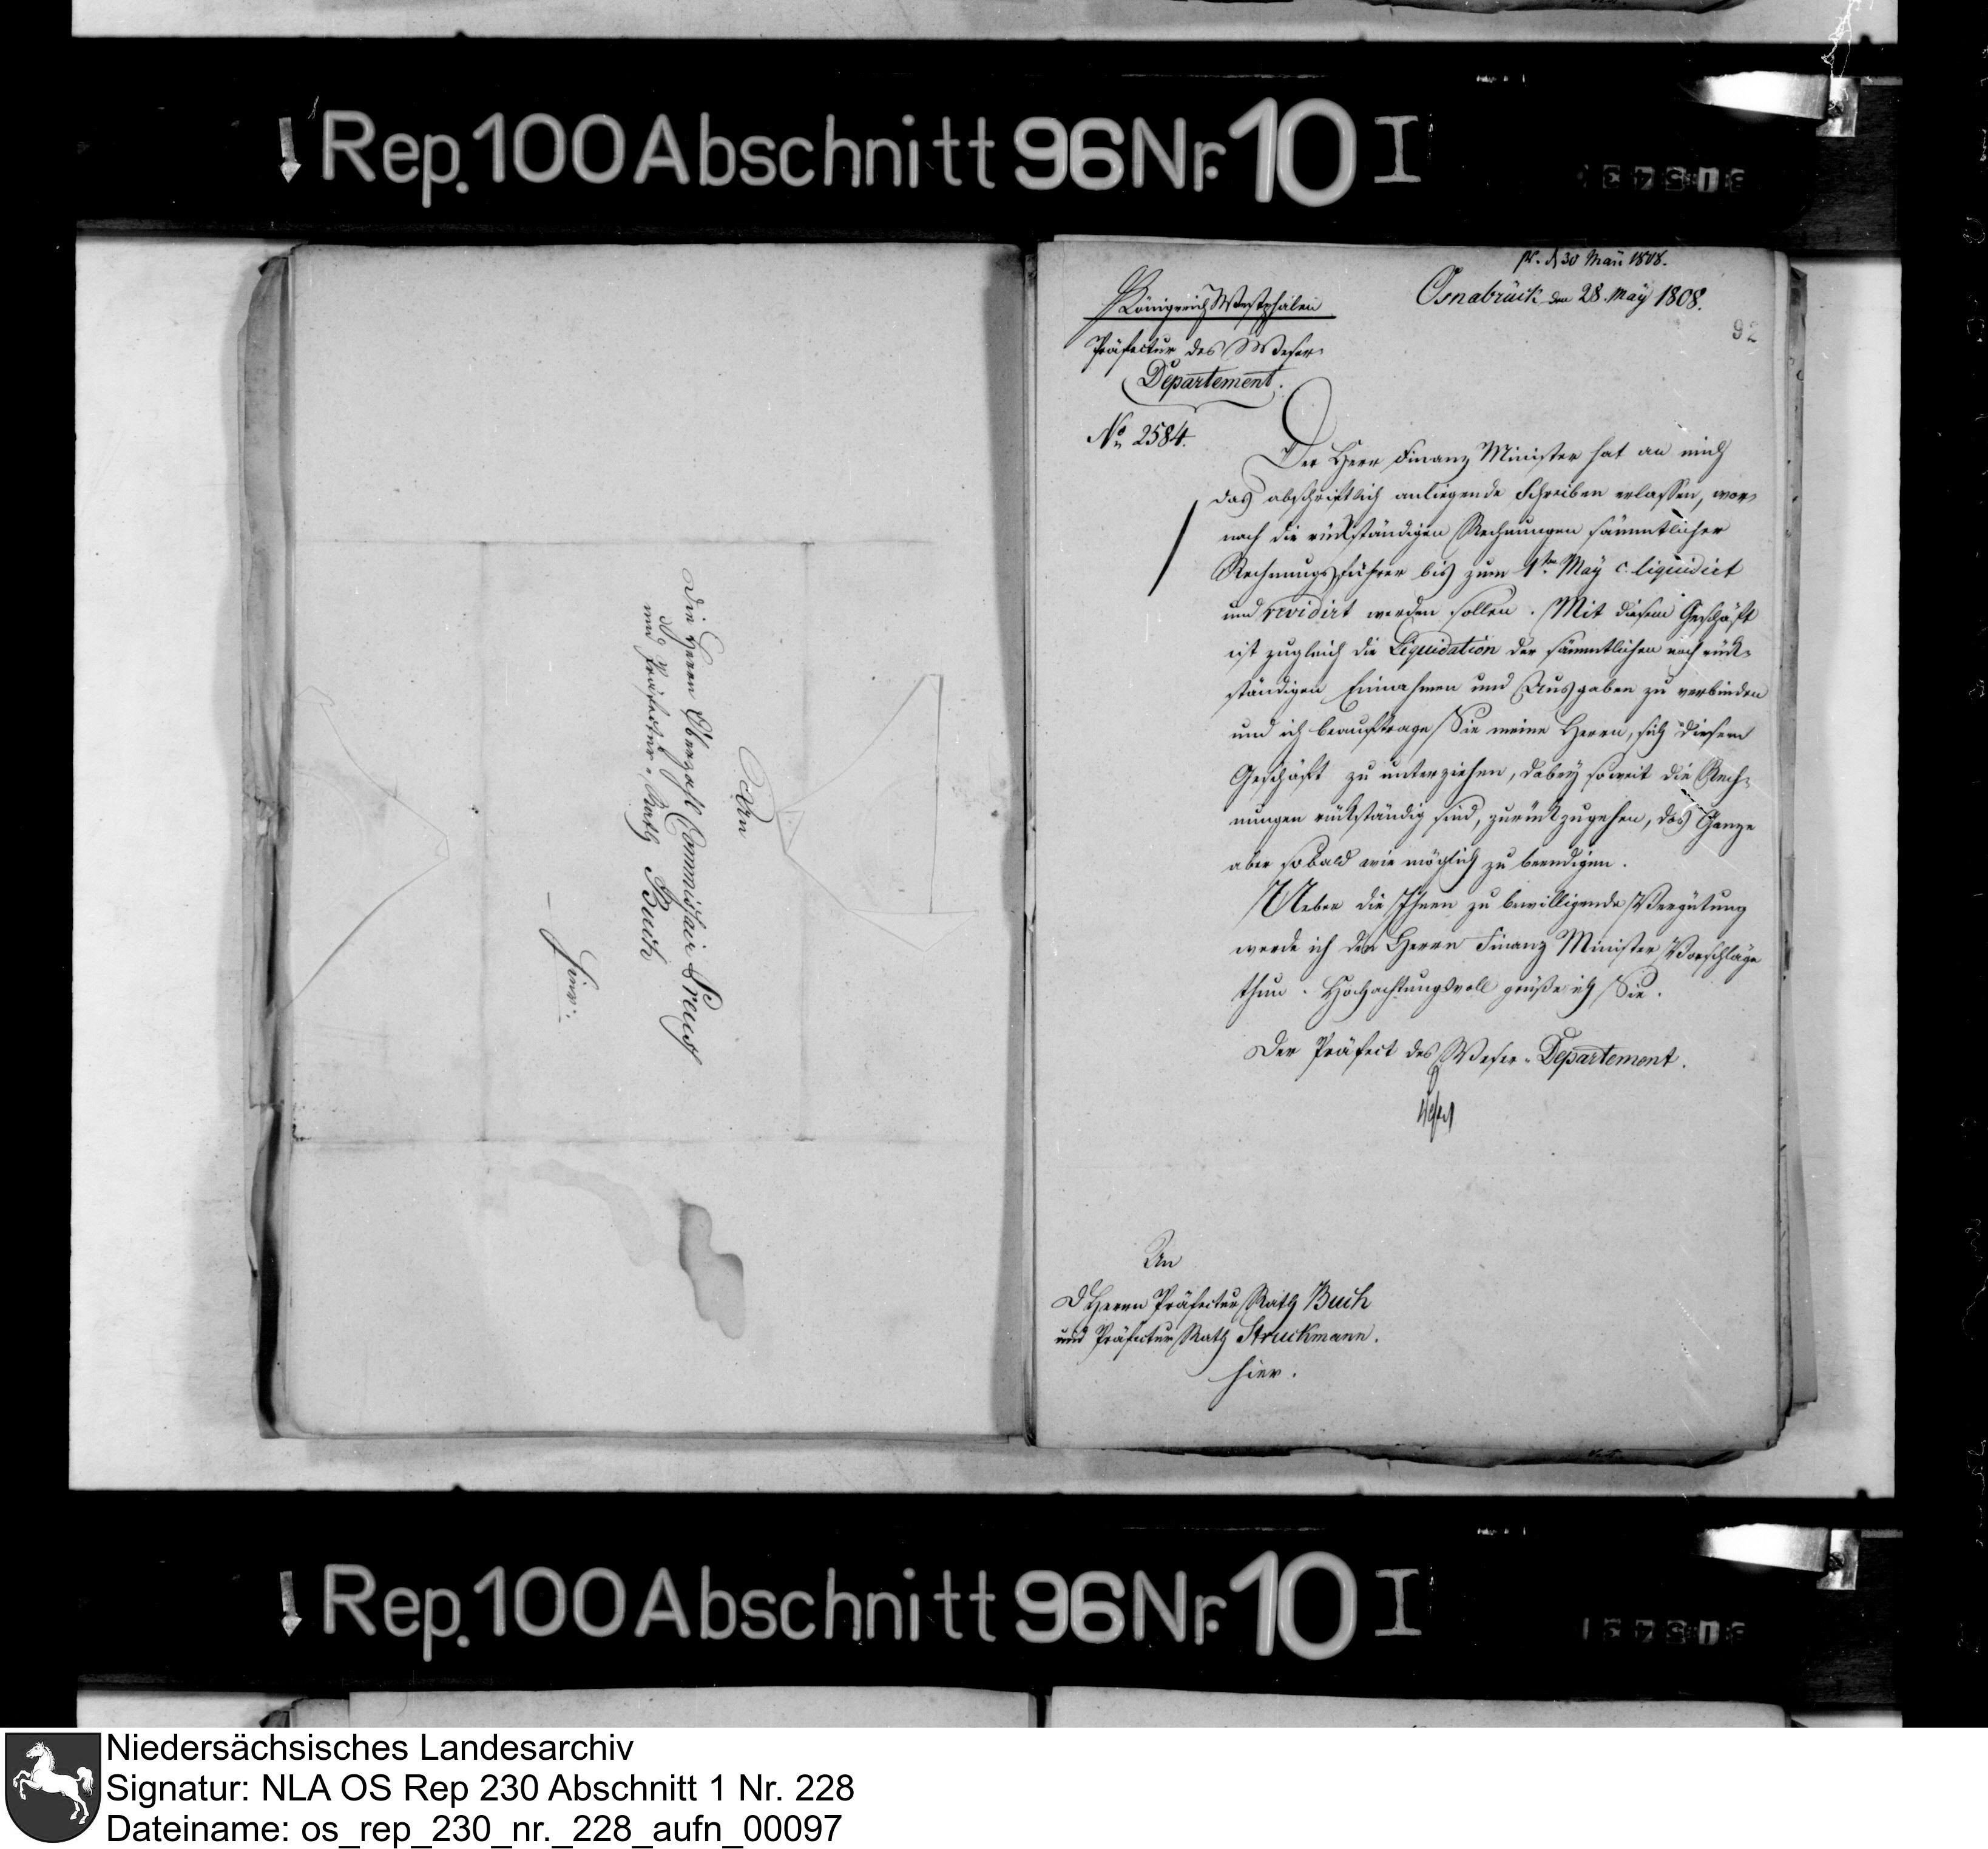 Rep. 100 Abschnitt 96 Nr. 10 I
An
Die Herrn Oberzahl Commissair Preuss
und Präfectur-Rath Buch
hier.
pr. d 30 Maii 1808.
Osnabrück den 28. May 1808.
92
Königreich Westphalen
Präfectur des Weser-
Departement.
No. 2584.
Der Herr Finanz Minister hat an mich
das abschriftlich anliegende Schreiben erlassen, wor-
nach die rückständigen Rechnungen sämmtlicher
Rechnungsführer bis zum 1ten May c. liquidirt
und revidirt werden sollen. Mit diesem Geschäft
ist zugleich die Liquidation der sämmtlichen noch rück-
ständigen Einnahmen und Ausgaben zu verbinden
und ich beauftrage Sie meine Herrn, sich diesem
Geschäft zu unterziehen, dabey soweit die Rech-
nungen rückständig sind, zurückzugehen, das Ganze
aber sobald wie möglich zu beendigen.
Ueber die Ihnen zu bewilligende Vergütung
werde ich dem Herrn Finanz Minister Vorschläge
thun. Hochachtungsvoll grüße ich Sie.
Der Präfect des Weser-Departement.
An
d Herrn Präfectur Rath Buch
und Präfectur Rath Struckmann.
hier.
Rep. 100 Abschnitt 96 Nr. 10 I
Niedersächsisches Landesarchiv
Signatur: NLA OS Rep 230 Abschnitt 1 Nr. 228
Dateiname: os_rep_230_nr._228_aufn_00097